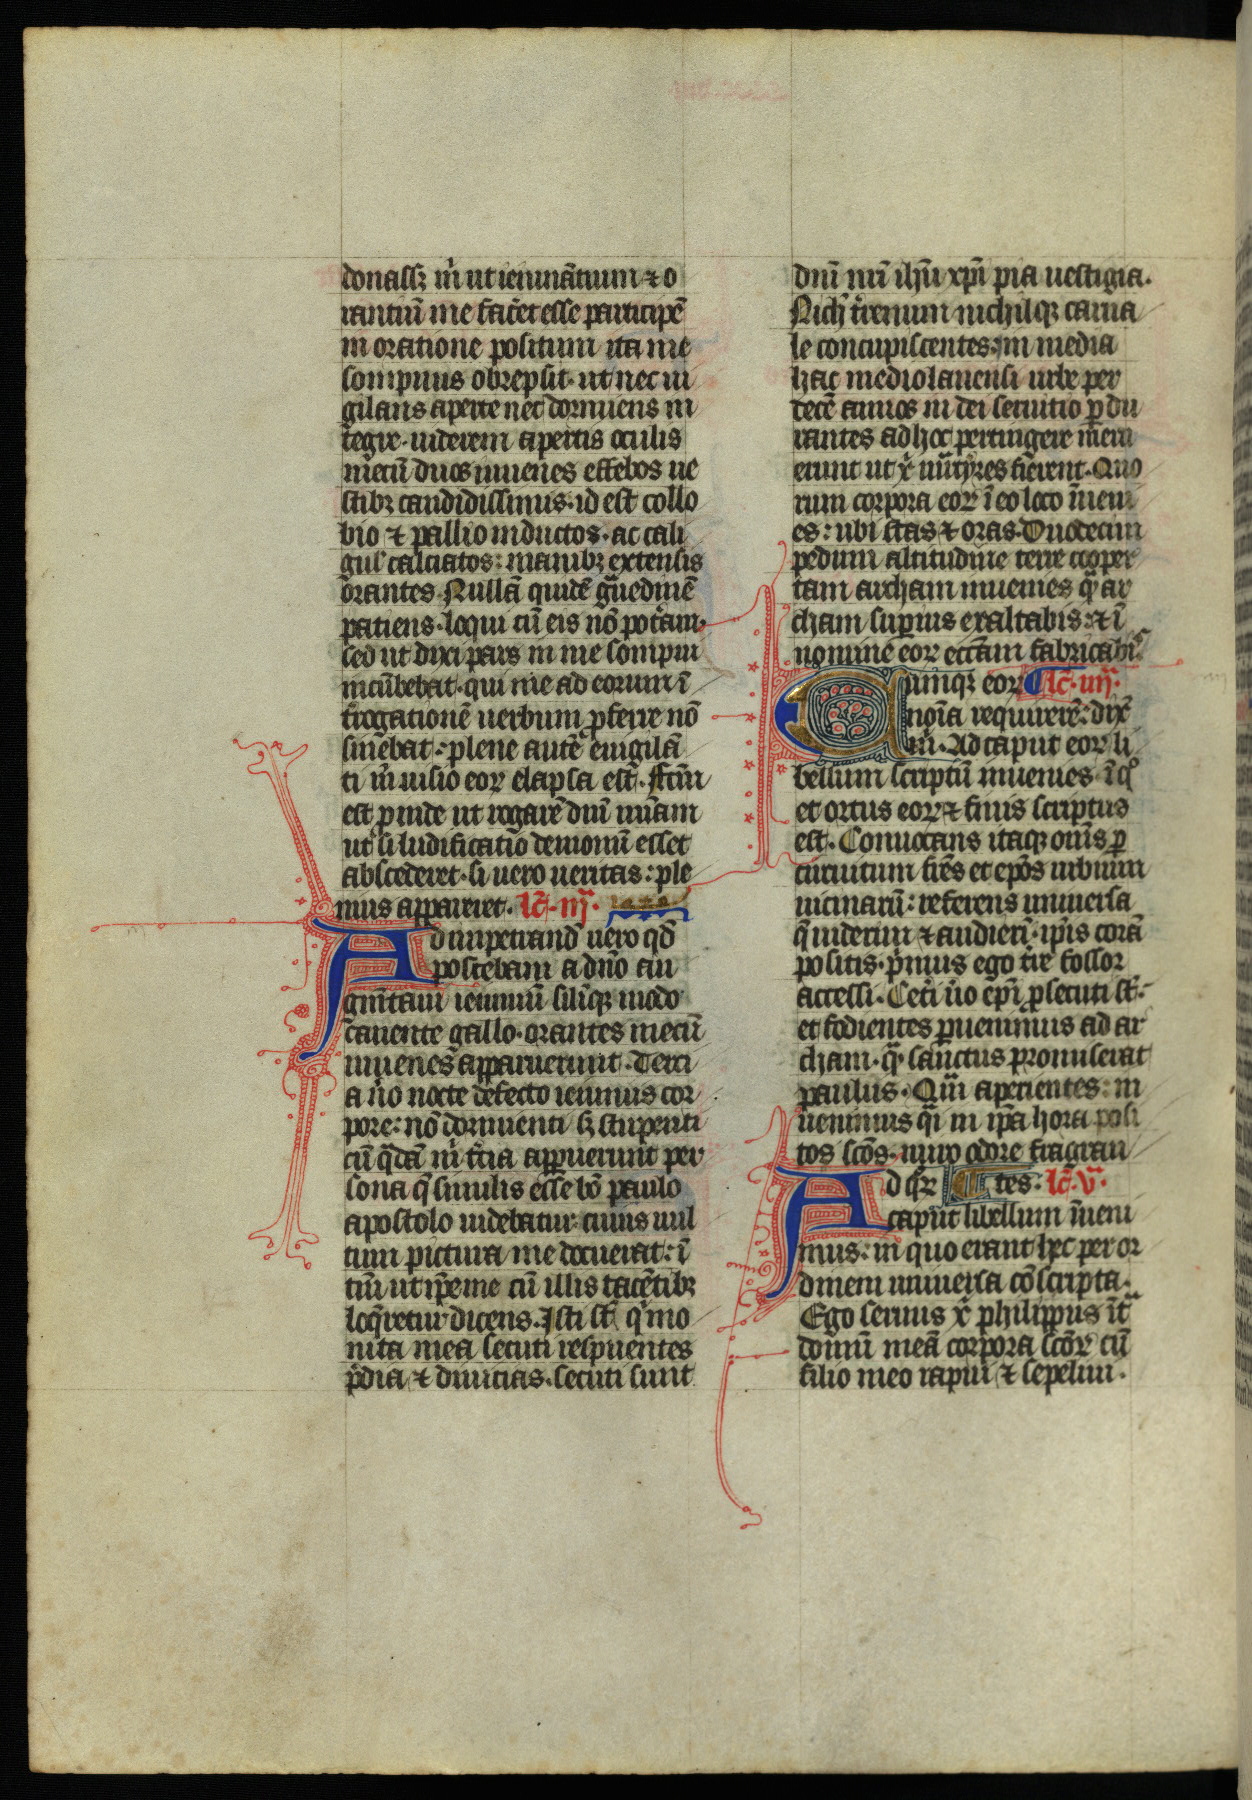 donass; m̄ ut ieiunātium ⁊ o
rantiū me fac̄et esse participē
in oratione positum ita me
sompnus obrepsit· ut nec ui
gilans aperte nec dormiens in
tegre· uiderem apertis oculis
mecū duos iuuenes effebos ue
stib; candidissimis· id est collo
bio ⁊ pallio indutos· ac cali
gul' calciatos: manib; extensis
orantes. Nullā quidē ḡuedinē
patiens· loqui cū eis nō pot̄am·
sed ut dixi pars in me sompni
incūbebat· qui me ad eorum ī
t̄rogationē uerbum p̄ferre nō
sinebat: plene autē euigilā
ti m̄ uisio eoꝝ elapsa est.
est ꝓinde ut rogarē dn̄m
ut si ludificatio demonū esset
abscederet· si uero ueritas: ple
nius appareret. lc̄· iij·
Ad impetrand' uero qd̄
poscebam a dn̄o au
gm̄taui ieiuniū siliq; modo
cauente gallo· orantes mecū
iuuenes apparuerunt. Terci
a ūo nocte defecto ieiuniis cor
pore: nō dormienti s; stupenti
cū q̄dā m̄ t̄cia apparuerunt per
sona q̄ similis esse bō paulo
apostolo uidebatur: cuius uul
tum pictura me docuerat: ī
tm̄ ut ip̄e me cū illis tacētib;
loq̄retur dicens. Isti st̄ q̄ mo
nita mea secuti respuentes
p̄dia ⁊ diuicias· secuti sunt
dn̄i nr̄i ih̄u xp̄i pia uestigia·
Nich' t̄renum nichilq; carna
le concupiscentes: in media
hac mediolanensi urbe per
decē annos in dei seruitio ꝑdu
rantes ad hoc pertingere mer
erunt ut x̄ m̄tyres fierent. Quo
rum corpora eoꝝ ī eo loco īueni
es: ubi stas ⁊ oras. Duodecim
pedum altitudine terre cooper
tam archam inuenies q̄ ar
cham suꝑius exaltabis: ⁊ ī
nomine eoꝝ ecc̄am fabricabis
Cumq; eoꝝ lc̄· iiij·
noīa requirerē: dixē
m̄. Ad caput eoꝝ li
bellum scriptū inuenies· ī q̊
et ortus eoꝝ ⁊ finis scriptus
est. Conuocans itaq; om̄s ꝑ
circuitum fr̄es et ep̄os urbium
uicinarū: referens uniuersa
q̄ uiderim ⁊ audierī· ip̄is corā
positis· p̄mus ego t̄re fossor
accessi. Cet̄i ūo ep̄i ꝓsecuti st̄:
et fodientes ꝑuenimus ad ar
cham· q̄ sanctus promiserat
paulus. Quā aperientes: in
uenimus q̄i in ip̄a hora posi
tos sc̄os· miro odore fragran
Ad q̄ꝝ tes: lc̄· v·
caput libellum īueni
mus: in quo erant hec per or
dinem uniuersa cōscripta·
Ego seruus x̄ philippus īt̄
domū meā corpora sc̄oꝝ cū
filio meo rapui ⁊ sepeliui·